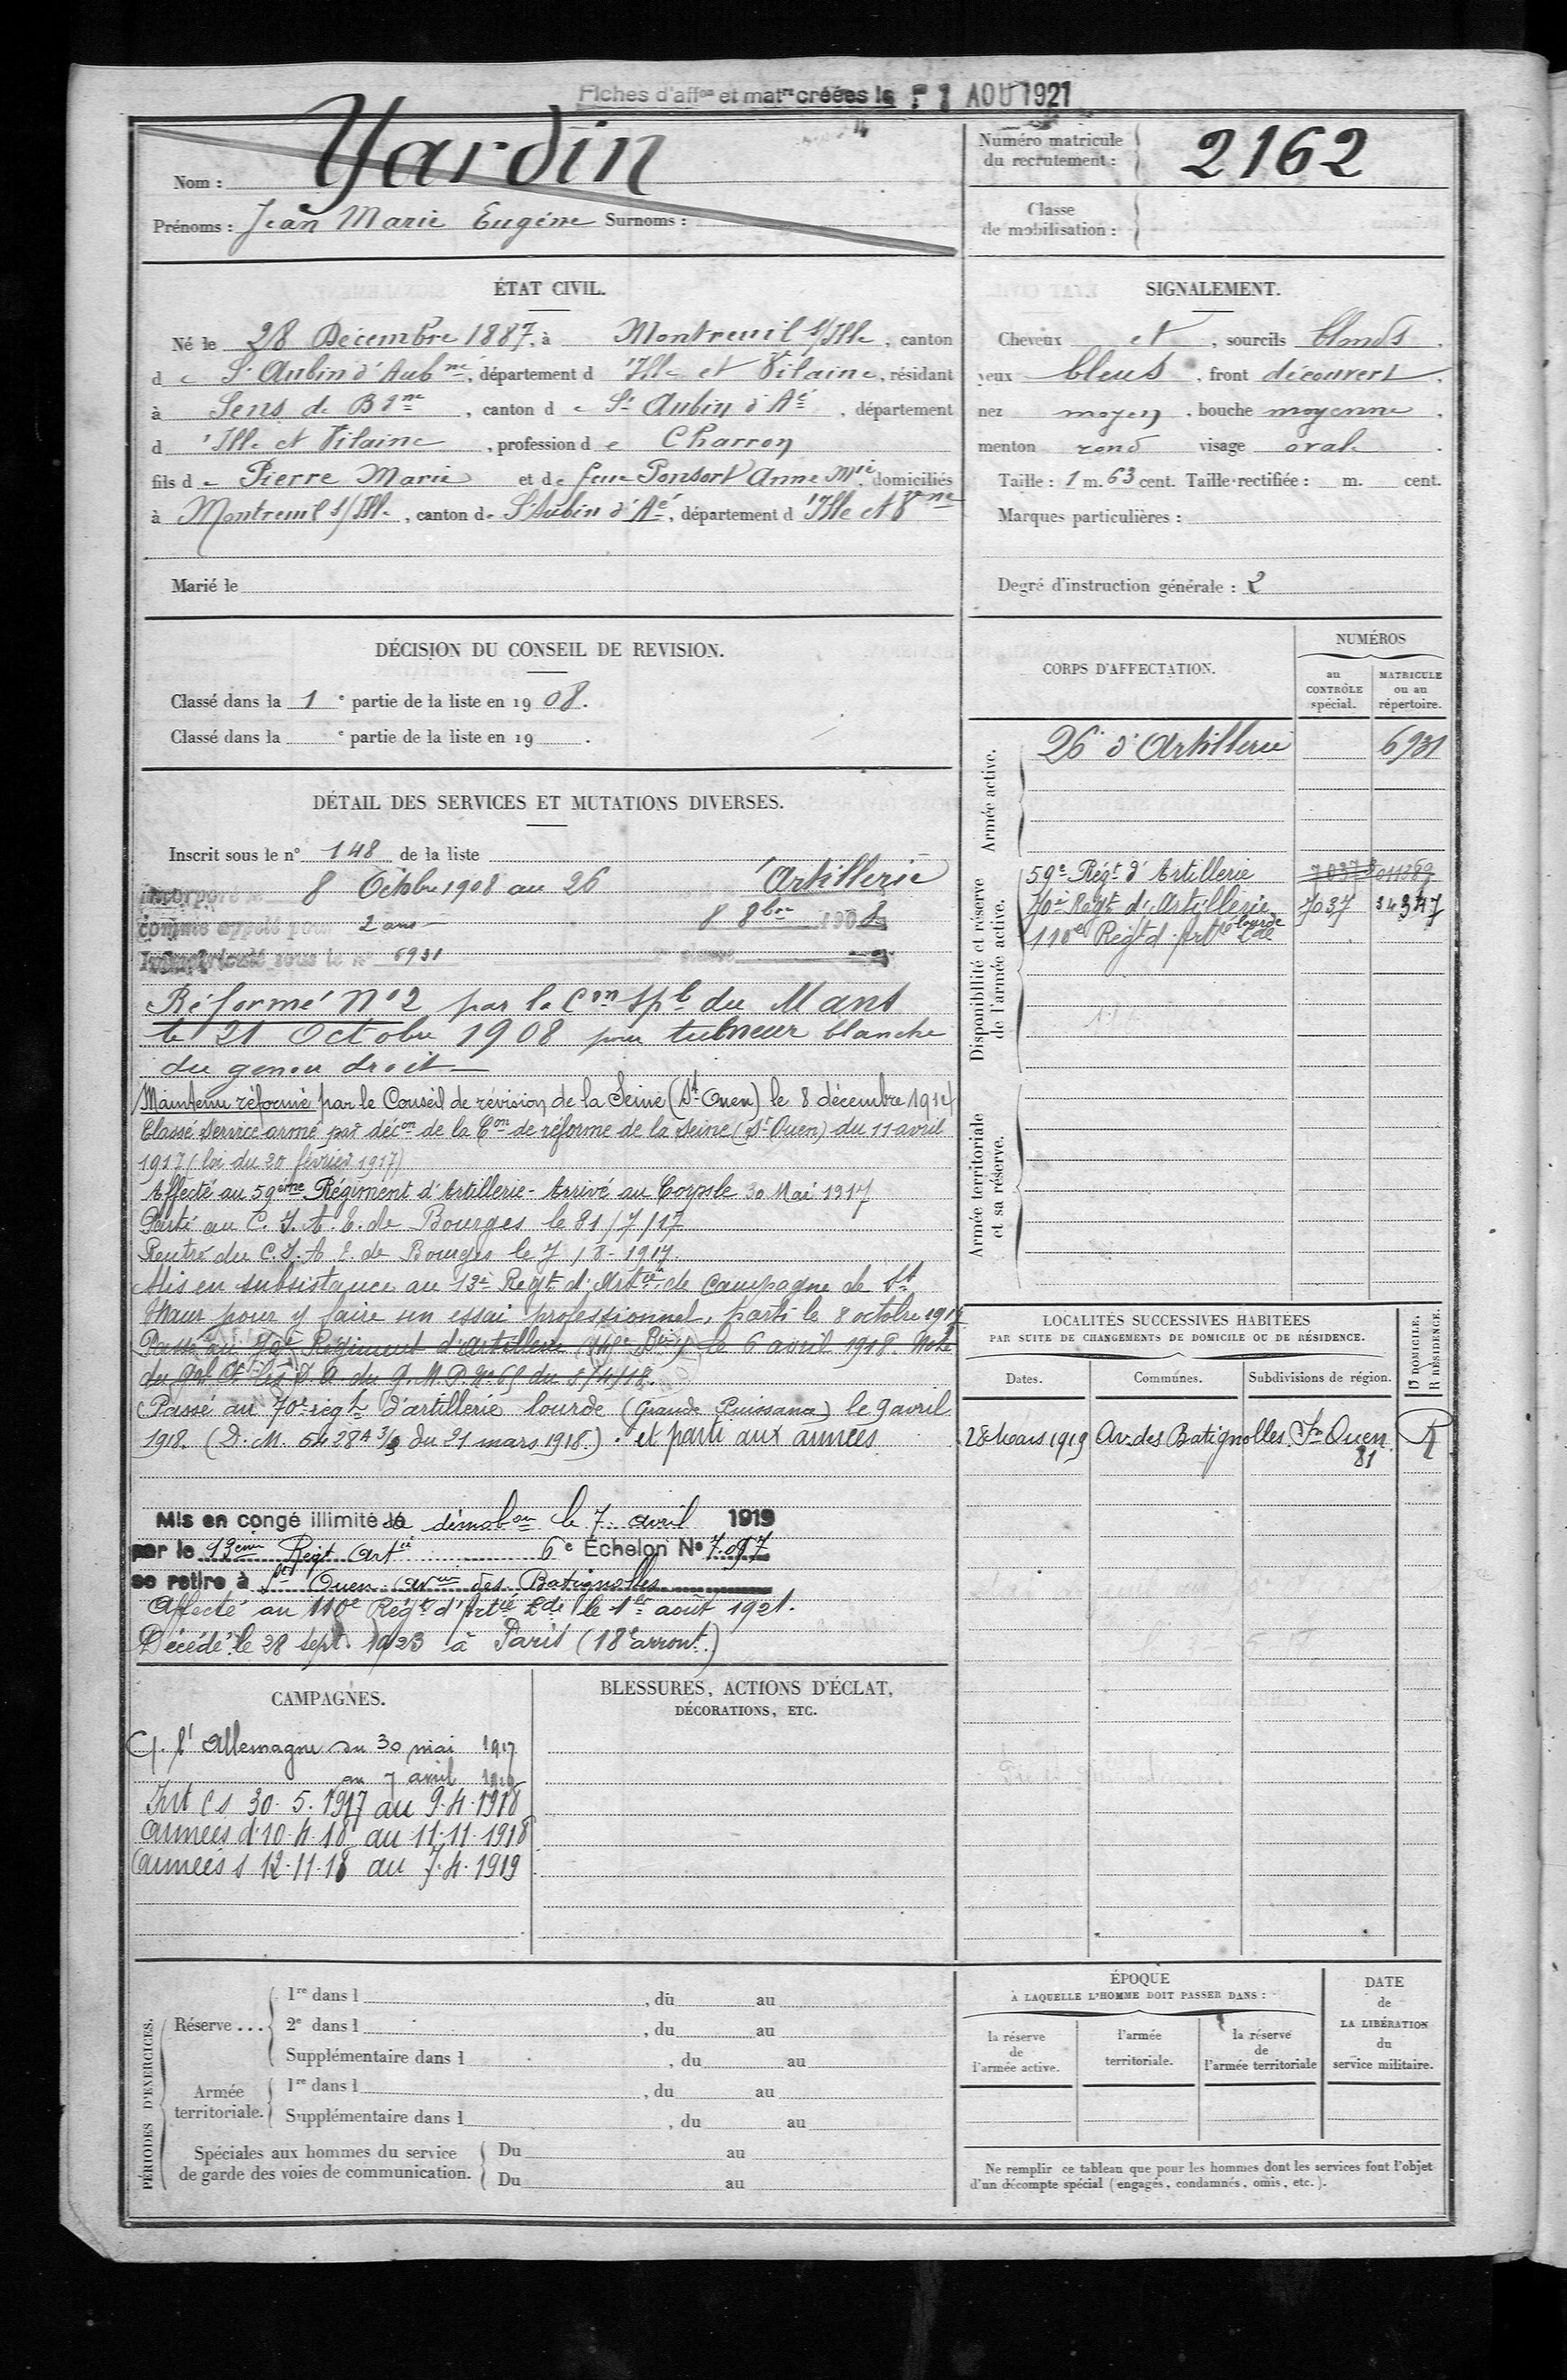 Fiches d'affon et matre créées le 1 AOU 1921
Nom : Yardin
Prénoms : Jean Marie Eugène Surnoms :
Numéro matricule du recrutement : 2162
Classe de mobilisation :
ÉTAT CIVIL.
Né le 28 Décembre 1887, à Montreuil s/Ille, canton
de St Aubin d'Aubné, département d'Ille et Vilaine, résidant
à Sens de Bgne, canton de St Aubin d'Aé, département
d'Ille et Vilaine, profession de Charron
fils de Pierre Marie et de feue Ponsort Anne Mie domiciliés
à Montreuil s/Ille, canton de St Aubin d'Aé, département d'Ille et Vne
Marié le
SIGNALEMENT.
Cheveux et, sourcils blonds.
yeux bleus, front découvert.
nez moyen, bouche moyenne.
menton rond visage ovale.
Taille : 1 m. 63 cent. Taille rectifiée : m. cent.
Marques particulières :
Degré d'instruction générale : 2
DÉCISION DU CONSEIL DE REVISION.
Classé dans la 1e partie de la liste en 1908.
Classé dans la e partie de la liste en 19 .
DÉTAIL DES SERVICES ET MUTATIONS DIVERSES.
Inscrit sous le n° 148 de la liste
Incorporé le 8 Octobre 1908 au 26 d'Artillerie
comme appelé pour 2 ans 8 8bre 1908
Immatriculé sous le n° 6931
Réformé N°2 par la Con spl du Mans
le 21 Octobre 1908 pour tumeur blanche
du genou droit
Maintenu réformé par le Conseil de révision de la Seine (St Ouen) le 8 décembre 1914
Classé service armé par décon de la Con de réforme de la Seine (St Ouen) du 11 avril
1917 (loi du 20 février 1917)
Affecté au 59ème Régiment d'Artillerie - Arrivé au Corps le 30 Mai 1917
Parti au C.I.A.E. de Bourges le 21/7/17
Rentré du C.I.A.E. de Bourges le 7-8-1917
Mis en subsistance au 13è Regt d'Artie de Campagne de St
Maur pour y faire un essai professionnel, parti le 8 octobre 1917
Passé au Régiment d'artillerie le 6 avril 1918. Note
du G.M.P. N° 69 du 5/4/18.
Passé au 70e régt d'artillerie lourde (Grande Puissance) le 9 avril
1918. (D.M. 5428A 3/3 du 21 mars 1918). et parti aux armées
Mis en congé illimité de démobon le 7 avril 1919
par le 13ème Régt Artie 6e Échelon N° 7.097
se retire à St Ouen avue des Batignolles
Affecté au 110e Régt d'Artie Lde le 1er août 1921.
Décédé le 28 sept. 1923 à Paris (18e arront.)
CORPS D'AFFECTATION.
NUMÉROS
au CONTRÔLE spécial.
MATRICULE ou au répertoire.
Armée active.
26e d'Artillerie 6931
Disponibilité et réserve de l'armée active.
59e Régt d'Artillerie 7037 011369
70e Régt d'Artillerie lourde 7037 34347
110e Régt d'Artie Lde
Armée territoriale et sa réserve.
LOCALITÉS SUCCESSIVES HABITÉES
PAR SUITE DE CHANGEMENTS DE DOMICILE OU DE RÉSIDENCE.
Dates. Communes. Subdivisions de région. D DOMICILE. R RÉSIDENCE.
28 Mars 1919 Av. des Batignolles St Ouen R
81
CAMPAGNES.
C. l'Allemagne du 30 mai 1917
au 7 avril 1919
Int Cs 30.5.1917 au 9.4.1918
armées d. 10.4.18 au 11.11.1918
armées s 12.11.18 au 7.4.1919
BLESSURES, ACTIONS D'ÉCLAT,
DÉCORATIONS, ETC.
PÉRIODES D'EXERCICES.
Réserve ... 1re dans l , du au
2e dans l , du au
Supplémentaire dans l , du au
Armée territoriale. 1re dans l , du au
Supplémentaire dans l , du au
Spéciales aux hommes du service de garde des voies de communication. Du au
Du au
ÉPOQUE
À LAQUELLE L'HOMME DOIT PASSER DANS :
la réserve de l'armée active.
l'armée territoriale.
la réserve de l'armée territoriale
DATE de LA LIBÉRATION du service militaire.
Ne remplir ce tableau que pour les hommes dont les services font l'objet
d'un décompte spécial (engagés, condamnés, omis, etc.).